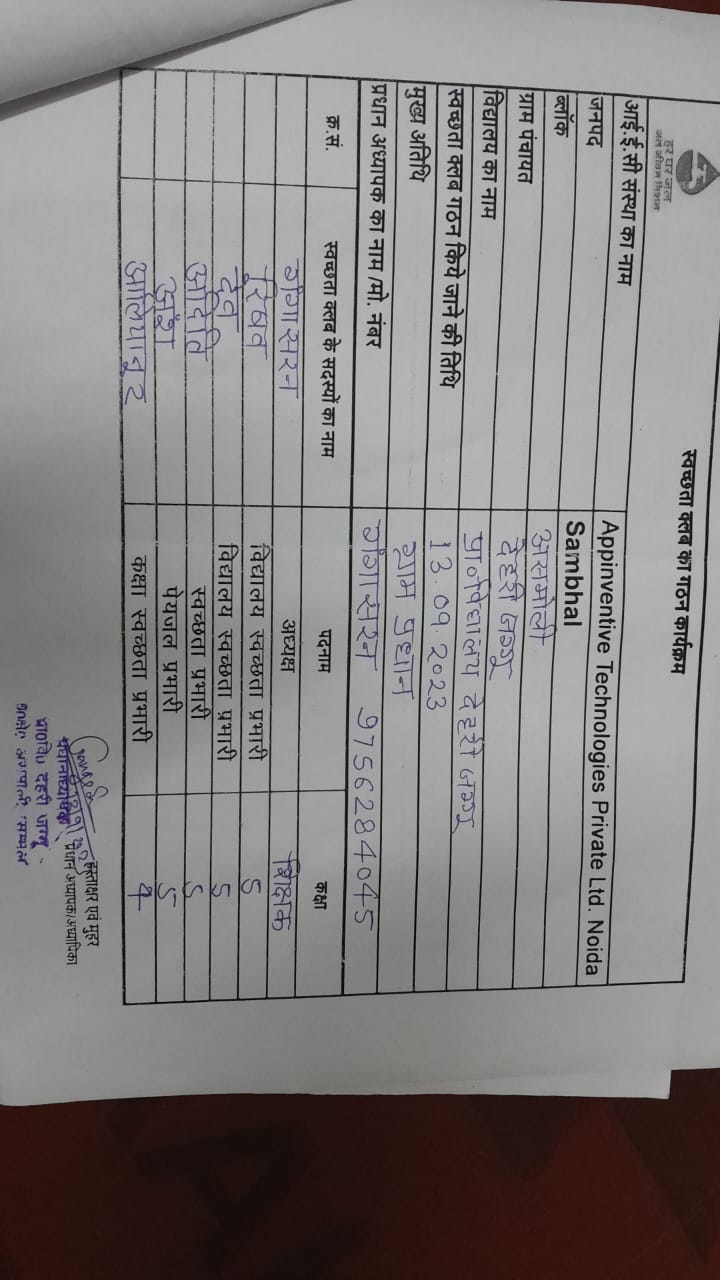 हर घर जल
जल जीवन मिशन
स्वच्छता क्लब का गठन कार्यक्रम
आई.ई.सी संस्था का नाम Appinventive Technologies Private Ltd. Noida
जनपद Sambhal
ब्लॉक असमोली
ग्राम पंचायत देहरी जग्गू
विद्यालय का नाम प्रा०विद्यालय देहरी जग्गू
स्वच्छता क्लब गठन किये जाने की तिथि 13.09.2023
मुख्य अतिथि ग्राम प्रधान
प्रधान अध्यापक का नाम /मो. नंबर गंगासरन 9756284045
क्र.सं. स्वच्छता क्लब के सदस्यों का नाम पदनाम कक्षा
गंगासरन अध्यक्ष शिक्षक
रिषव विद्यालय स्वच्छता प्रभारी 5
देव विद्यालय स्वच्छता प्रभारी 5
अदिति स्वच्छता प्रभारी 5
अंश पेयजल प्रभारी 5
कक्षा स्वच्छता प्रभारी 4
हस्ताक्षर एवं मुहर
प्रधान अध्यापक/अध्यापिका
प्रधानाध्यापक
प्रा०वि० देहरी जग्गू